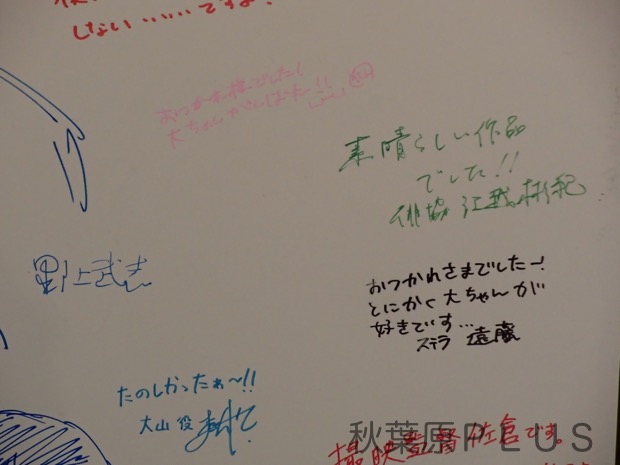 しない……ですよ!
おつかれ様でした!
素晴らしい作品
でした!!
俳協 江越彬紀
野上武志
おつかれさまでしたー!
とにかく大ちゃんが
好きです…
ステラ 遠藤
たのしかったぁ〜!!
大山 役
撮映監督 佐倉です。
秋葉原PLUS